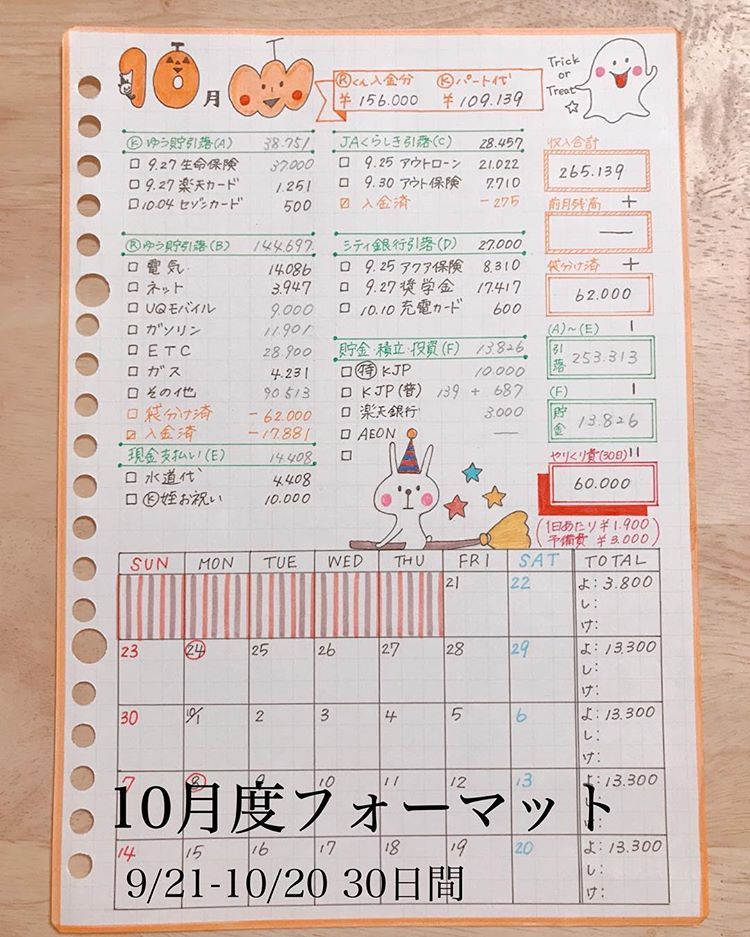 10月
Ⓡくん入金分 Ⓚパート代
¥156.000 ¥109.139
Trick
or
Treat
Ⓚゆう貯引落(A) 38.751
9.27 生命保険 37.000
9.27 楽天カード 1.251
10.04 セゾンカード 500
JAくらしき引落(C) 28.457
9.25 アウトローン 21.022
9.30 アウト保険 7.710
入金済 -275
収入合計
265.139
前月残高 +
—
袋分け済 +
62.000
Ⓡゆう貯引落(B) 144.697
電気 14.086
ネット 3.947
UQモバイル 9.000
ガソリン 11.901
ETC 28.900
ガス 4.231
その他 90.513
袋分け済 -62.000
入金済 -17.881
シティ銀行引落(D) 27.000
9.25 アクア保険 8.310
9.27 奨学金 17.417
10.10 充電カード 600
(A)~(E)
引落 253.313
貯金・積立・投資(F) 13.826
㊕KJP 10.000
KJP(普) 139 + 687
楽天銀行 3.000
AEON —
(F)
貯金 13.826
現金支払い(E) 14.408
水道代 4.408
Ⓚ姪お祝い 10.000
やりくり費(30日)
60.000
(1日あたり¥1.900
予備費 ¥3.000)
SUN MON TUE WED THU FRI SAT TOTAL
21 22 よ: 3.800
し:
け:
23 24 25 26 27 28 29 よ:13.300
し:
け:
30 10/1 2 3 4 5 6 よ:13.300
し:
け:
7 8 9 10 11 12 13 よ:13.300
し:
け:
14 15 16 17 18 19 20 よ:13.300
し:
け:
10月度フォーマット
9/21-10/20 30日間